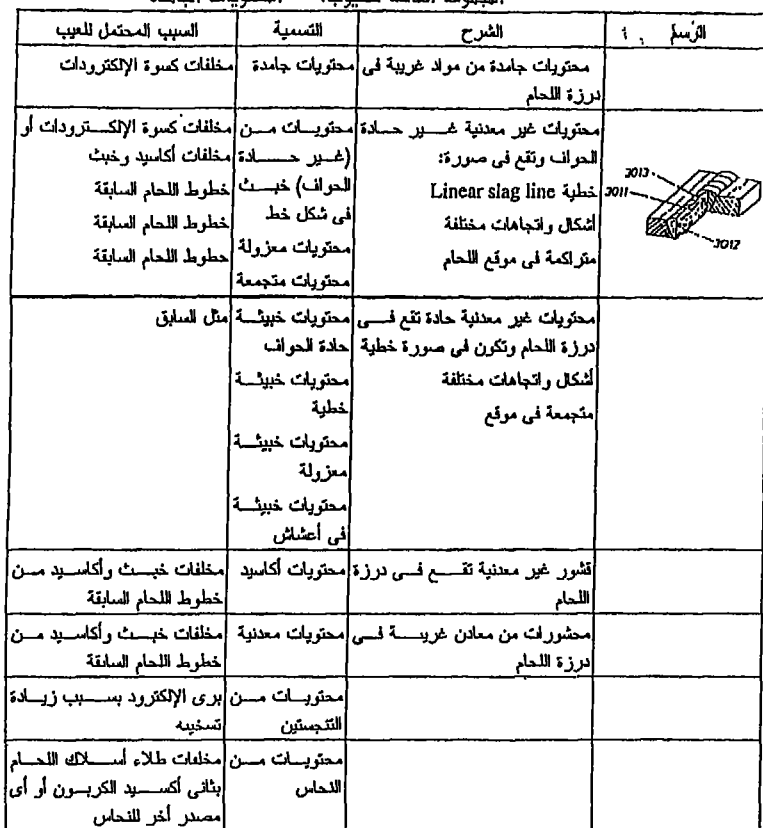 الرسم
الشرح
التسمية
السبب المحتمل للعيب
محتويات جامدة من مواد غريبة فى
درزة اللحام
محتويات جامدة
مخلفات كسوة الإلكترودات
3013
3011
3012
محتويات غير معدنية غير حادة
الحواف وتقع فى صورة:
خطية Linear slag line
أشكال واتجاهات مختلفة
متراكمة فى موقع اللحام
محتويات من
(غير حادة
الحواف) خبث
فى شكل خط
محتويات معزولة
محتويات متجمعة
مخلفات كسوة الإلكترودات أو
مخلفات أكاسيد وخبث
خطوط اللحام السابقة
خطوط اللحام السابقة
خطوط اللحام السابقة
محتويات غير معدنية حادة تقع فى
درزة اللحام وتكون فى صورة خطية
أشكال واتجاهات مختلفة
متجمعة فى موقع
محتويات خبيثة
حادة الحواف
محتويات خبيثة
خطية
محتويات خبيثة
معزولة
محتويات خبيثة
فى أعشاش
مثل السابق
قشور غير معدنية تقع فى درزة
اللحام
محتويات أكاسيد
مخلفات خبث وأكاسيد من
خطوط اللحام السابقة
محشورات من معادن غريبة فى
درزة اللحام
محتويات معدنية
مخلفات خبث وأكاسيد من
خطوط اللحام السابقة
محتويات من
التنجستين
برى الإلكترود بسبب زيادة
تسخينه
محتويات من
النحاس
مخلفات طلاء أسلاك اللحام
بثانى أكسيد الكربون أو أى
مصدر أخر للنحاس